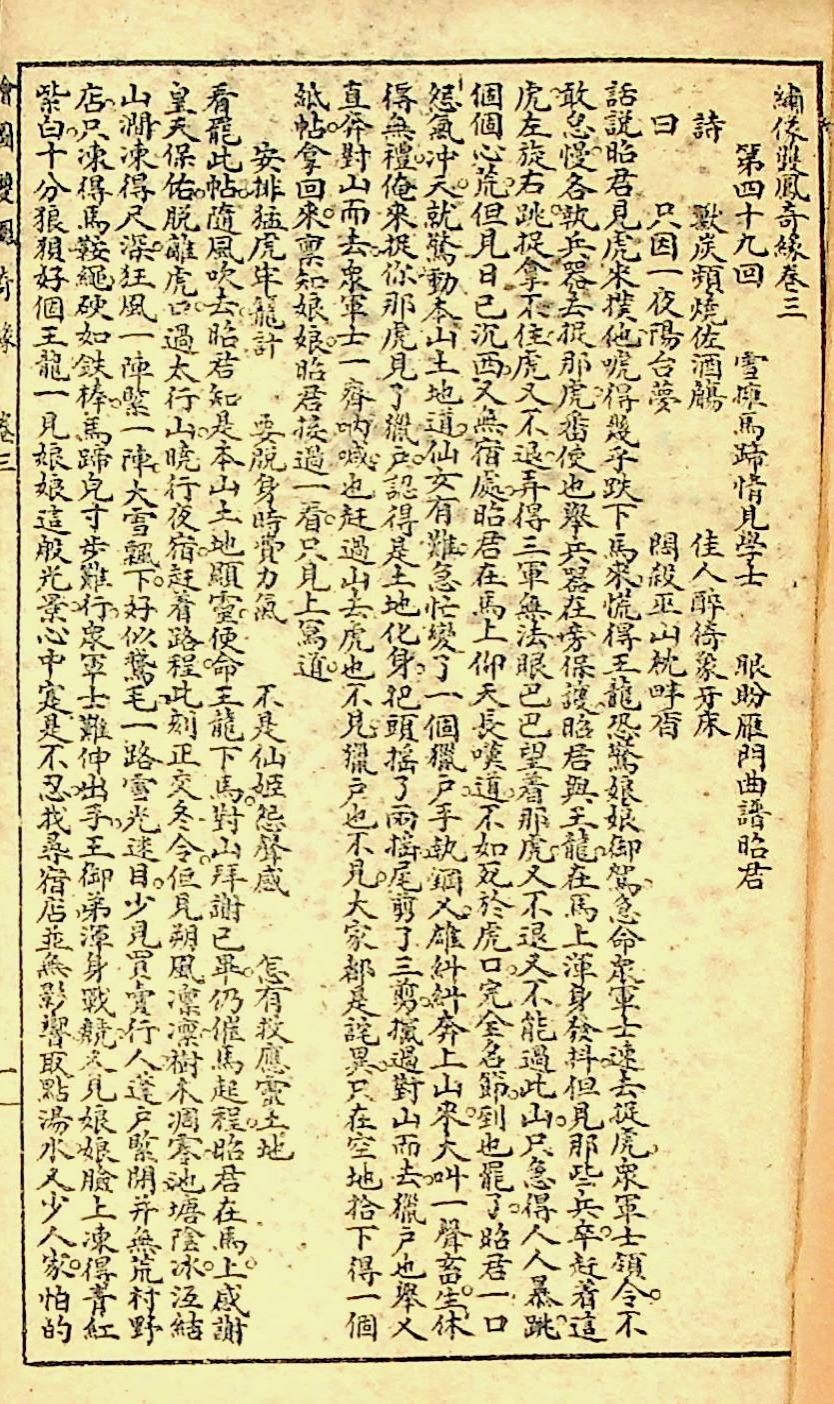 繡像雙鳳奇緣卷三
第四十九回　雪壅馬蹄情見學士　眼盼雁門曲譜昭君
詩　獸炭頻燒佐酒觴　佳人醉倚象牙床
曰　只因一夜陽台夢　閙殺巫山枕畔宵
話說昭君見虎來撲他唬得幾乎跌下馬來慌得王龍恐驚娘娘御駕急命眾軍士速去捉虎眾軍士領令不
敢怠慢各執兵器去捉那虎番使也舉兵器在傍保護昭君與王龍在馬上渾身發抖但見那些兵卒赶着這
虎左旋右跳捉拿不住虎又不退弄得三軍無法眼巴巴望着那虎又不退又不能過此山只急得人人暴跳
個個心荒但見日已沉西又無宿處昭君在馬上仰天長嘆道不如死於虎口完全名節到也罷了昭君一口
怨氣冲天就驚動本山土地道仙女有難急忙變了一個獵户手執鋼叉雄糾糾奔上山來大叫一聲畜生休
得無禮俺來捉你那虎見了獵户認得是土地化身把頭搖了兩搖尾剪了三剪攛過對山而去獵户也舉叉
直奔對山而去眾軍士一齊吶喊也赶過山去虎也不見獵户也不見大家都是詫異只在空地拾下得一個
紙帖拿回來禀知娘娘昭君接過一看只見上寫道
安排猛虎牢籠計　要脫身時費力氣　不是仙姬怨聲感　怎有救應靈土地
看罷此帖隨風吹去昭君知是本山土地顯靈使命王龍下馬對山拜謝已畢仍催馬起程昭君在馬上感謝
皇天保佑脫離虎口過太行山曉行夜宿赶着路程此刻正交冬令但見朔風凛凛樹木凋零池塘陰冰冱結
山澗凍得尺深狂風一陣緊一陣大雪飄下好似鵞毛一路雪光迷目少見買賣行人蓬户緊閉并無荒村野
店只凍得馬鞍繩硬如鉄棒馬蹄皃寸步難行眾軍士難伸出手王御弟渾身戰競又見娘娘臉上凍得青紅
紫白十分狼狽好個王龍一見娘娘這般光景心中寔是不忍找尋宿店並無影響取點湯水又少人家怕的
繪圖雙鳳奇緣　卷三　一